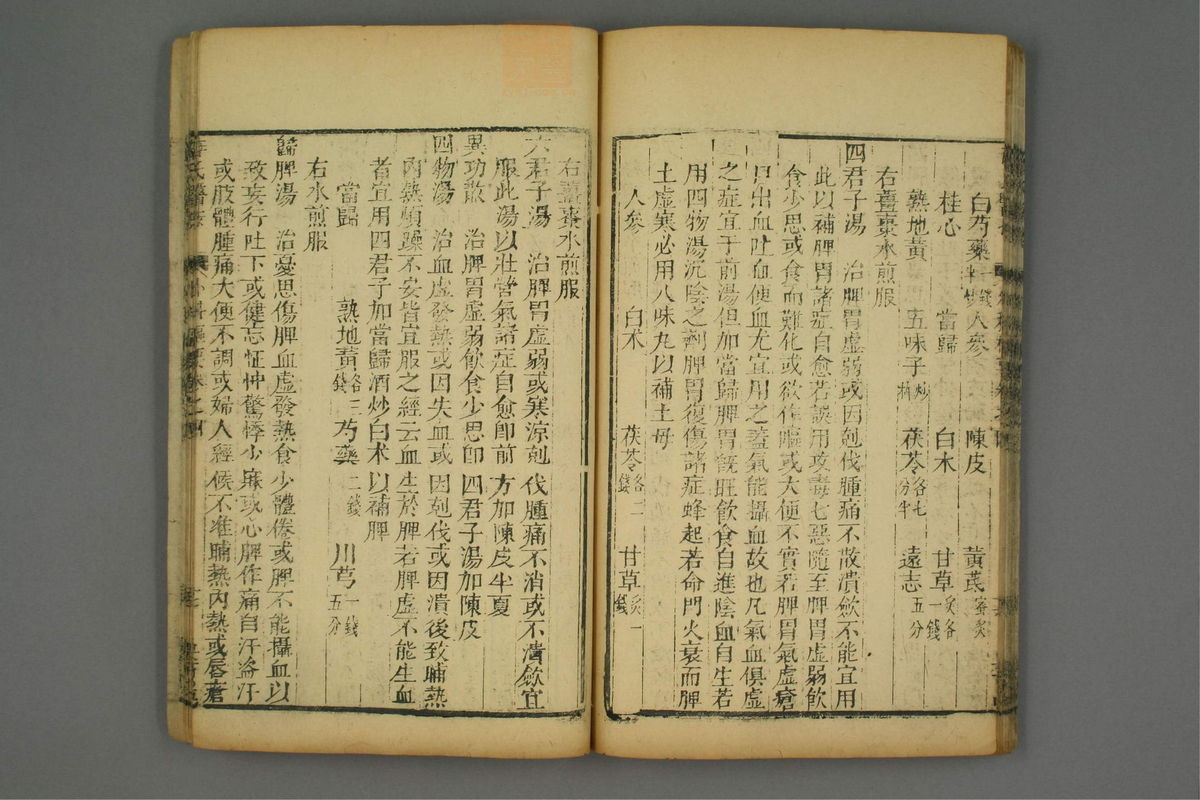 白芍藥 一錢 人參 陳皮 黃芪 蜜炙
桂心 當歸 白朮 甘草 炙各一錢
熟地黃 五味子 炒 茯苓 各七分半 遠志 五分
右薑棗水煎服
四君子湯 治脾胃虛弱或因剋伐腫痛不散潰斂不能宜用
此以補脾胃諸症自愈若誤用攻毒七惡隨至脾胃虛弱飲
食少思或食而難化或欲作嘔或大便不實若脾胃氣虛瘡
口出血吐血便血尤宜用之蓋氣能攝血故也凡氣血俱虛
之症宜于前湯但加當歸脾胃旣旺飲食自進陰血自生若
用四物湯沉陰之劑脾胃復傷諸症蜂起若命門火衰而脾
土虛寒必用八味丸以補土母
人參 白朮 茯苓 各二錢 甘草 炙一錢
右薑棗水煎服
六君子湯 治脾胃虛弱或寒涼剋伐腫痛不消或不潰斂宜
服此湯以壯營氣諸症自愈卽前方加陳皮半夏
異功散 治脾胃虛弱飲食少思卽四君子湯加陳皮
四物湯 治血虛發熱或因失血或因剋伐或因潰後致晡熱
內熱煩躁不安皆宜服之經云血生於脾若脾虛不能生血
者宜用四君子加當歸酒炒白朮以補脾
當歸 熟地黃 各三錢 芍藥 二錢 川芎 一錢五分
右水煎服
歸脾湯 治憂思傷脾血虛發熱食少體倦或脾不能攝血以
致妄行吐下或健忘怔忡驚悸少寐或心脾作痛自汗盜汗
或肢體腫痛大便不調或婦人經候不准晡熱內熱或唇瘡